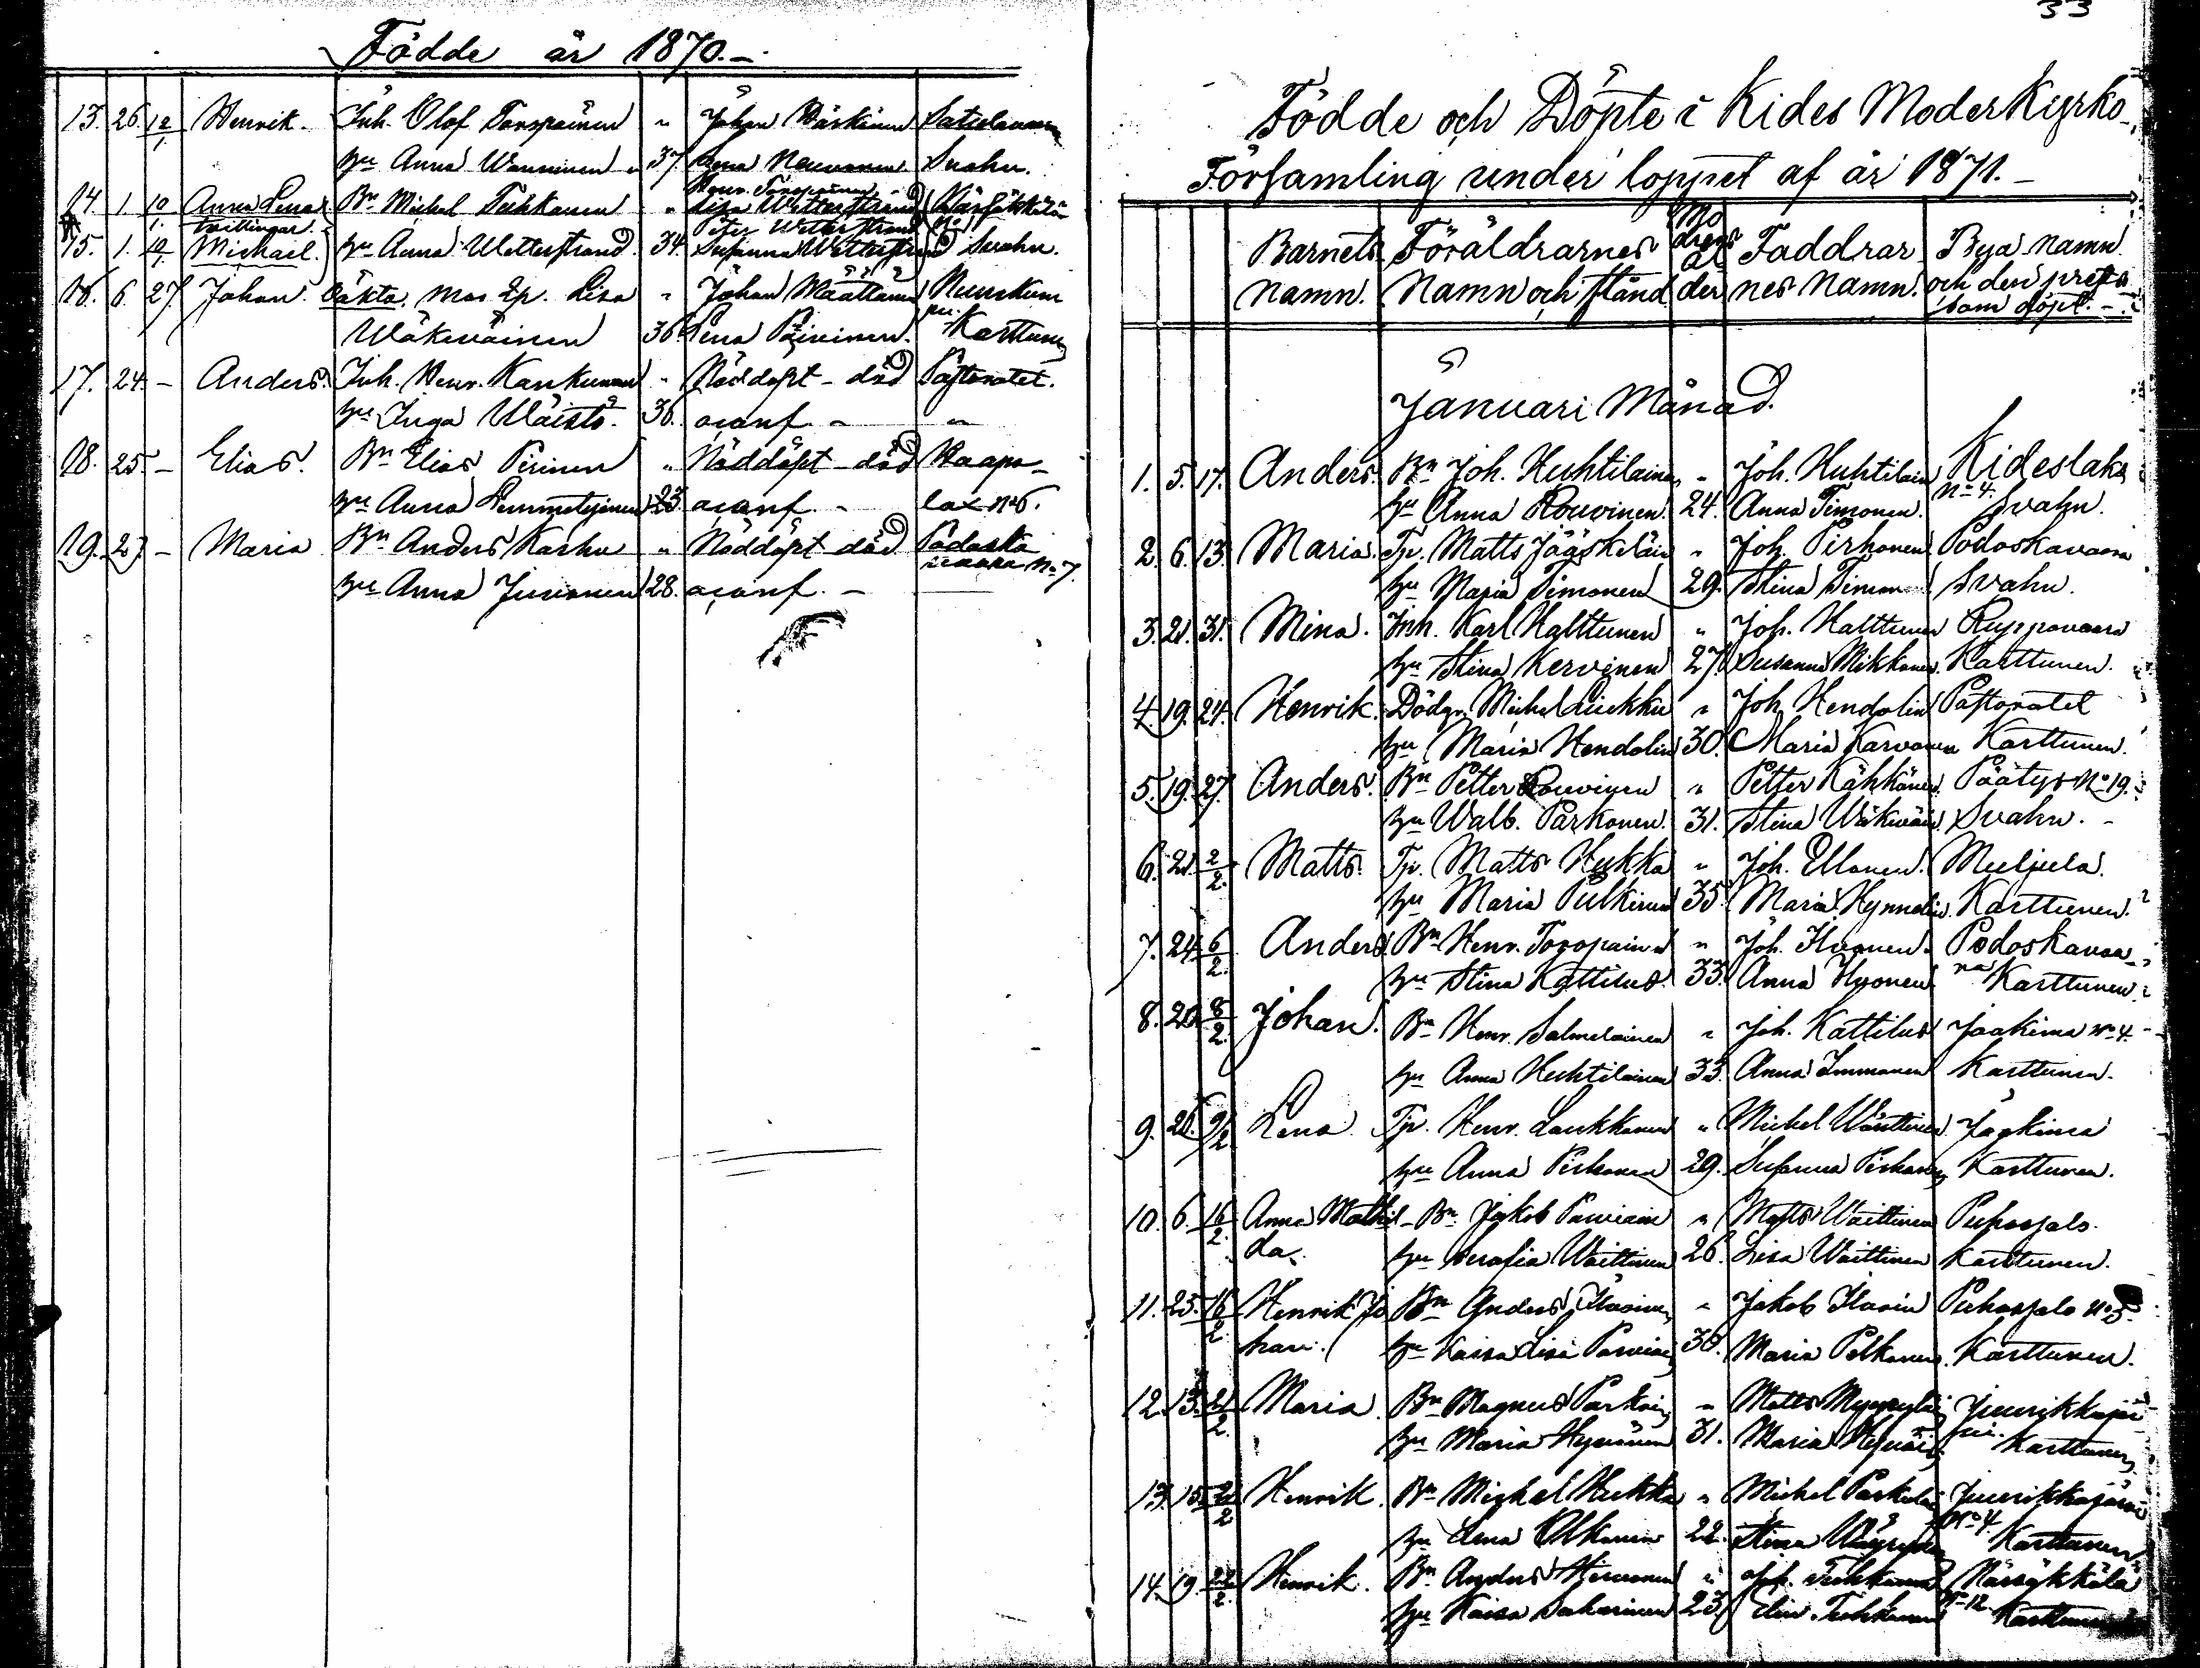 Födde år 1870.-
13. 26. 12/1. Henrik. Inh. Olof Toropainen " Johan Käskinen
hu Anna Wänninen 37. Lena Svahn.
Henr. Toropainen
14. 1. 10/1. Anna Lena Bn Michel Tuhkanen " Lisa Wetterstrand
tvillingar. Peter Wetterstrand
15. 1. 10/1. Michael. hu Anna Wetterstrand. 34. Susanna Wetterstrand Svahn.
16. 6. 27. Johan. Oäkta. Mor. Lisa " Johan Määttänen
Wäkeväinen 36. Lena Päivinen. Karttunen
17. 24. - Anders. Inh. Henr. Kankunen " Nöddöpt - död Pastoratet.
hu Inga Wäistö. 36. ocanf. - "
18. 25. - Elias. Bn Elias Pirinen " Nöddöpt - död Haapa-
hu Anna Lemmetyinen 23. ocanf. - lax No 6.
19. 27. - Maria Bn Anders Karhu " Nöddöpt död Podoska
vaara No 7.
hu Anna Jusvonen 28. ocanf. -
33
Födde och Döpte i Kides Moderkyrko-
Församling under loppet af år 1871.-
Barnets Föräldrarnes Mo Faddrar Bya namn
drens
namn. Namn och stånd ål der nes Namn. och den prest
som döpt. -
Januari Månad.
1. 5. 17. Anders. Bn Joh. Huhtilainen " Joh. Huhtilain Kideslaks
No 4.
hu Anna Rouvinen. 24. Anna Timonen. Svahn.
2. 6. 13. Maria. Tp. Matts Jääskeläin " Joh. Pirhonen Podoskavaara
hu Maria Simonen 29. Stina Simon Svahn.
3. 21. 31. Mina. Inh. Karl Halttunen " Joh. Halttunen Ruppovaara
hu Stina Kervinen 27. Susanna Mikkonen. Karttunen.
4. 19. 24. Henrik. Dödgr. Michel Liukku " Joh Hendolin Pastoratet
hu Maria Hendolin 30. Maria Karvonen Karttunen.
5. 19. 27. Anders. Bn Petter Rouvinen " Petter Kähkönen. Päätys No 19.
hu Walb. Parkonen. 31. Stina Wäkeväin. Svahn. -
6. 21. 2/2. Matts. Tp. Matts Hukka " Joh. Ellonen. Muljula.
hu Maria Pulkinen 35. Maria Hynnelin. Karttunen.
7. 24. 6/2. Anders Bn Henr. Toropainen " Joh. Ikonen. Podoskavaa-
ra
hu Stina Kattilus. 33. Anna Hyvonen Karttunen.
8. 20. 8/2. Johan. Bn Henr. Salmelainen " Joh. Kattilus Jaakima No 4.
hu Anna Huhtilainen 33. Anna Immonen Karttunen.
9. 21. 9/2. Lena. Tp. Henr. Laukkanen " Michel Wänttinen. Jaakima
hu Anna Pirhonen 29. Susanna Pirhonen Karttunen.
10. 6. 16/2. Anna Mathil- Bn Jakob Parviain " Matts Waittinen Puhossalo.
da. hu Serafia Waittinen 26. Lisa Waittinen Karttunen.
11. 25. 16/2. Henrik Jo Bn Anders " Jakob Puhossalo No 5.
han. hu Kaisa Lisa Parviai 30. Maria Pelkonen. Karttunen.
12. 13. 21/2. Maria. Bn Magnus Parkoin " Matts Juurikkajär
vi.
hu Maria Hyvönen 31. Maria Karttunen
13. 15. Henrik. Bn Michel Hukka " Michel Juurikkajärvi
No 4.
hu Lena Olkonen 22. Stina Karttunen
14. 19. 22/2. Henrik. Bn Anders Hirvonen " Joh. Tuhkanen Närsäkkälä
No 12.
hu Kaisa Sakarinen 23. Elin Tuhkanen Karttunen